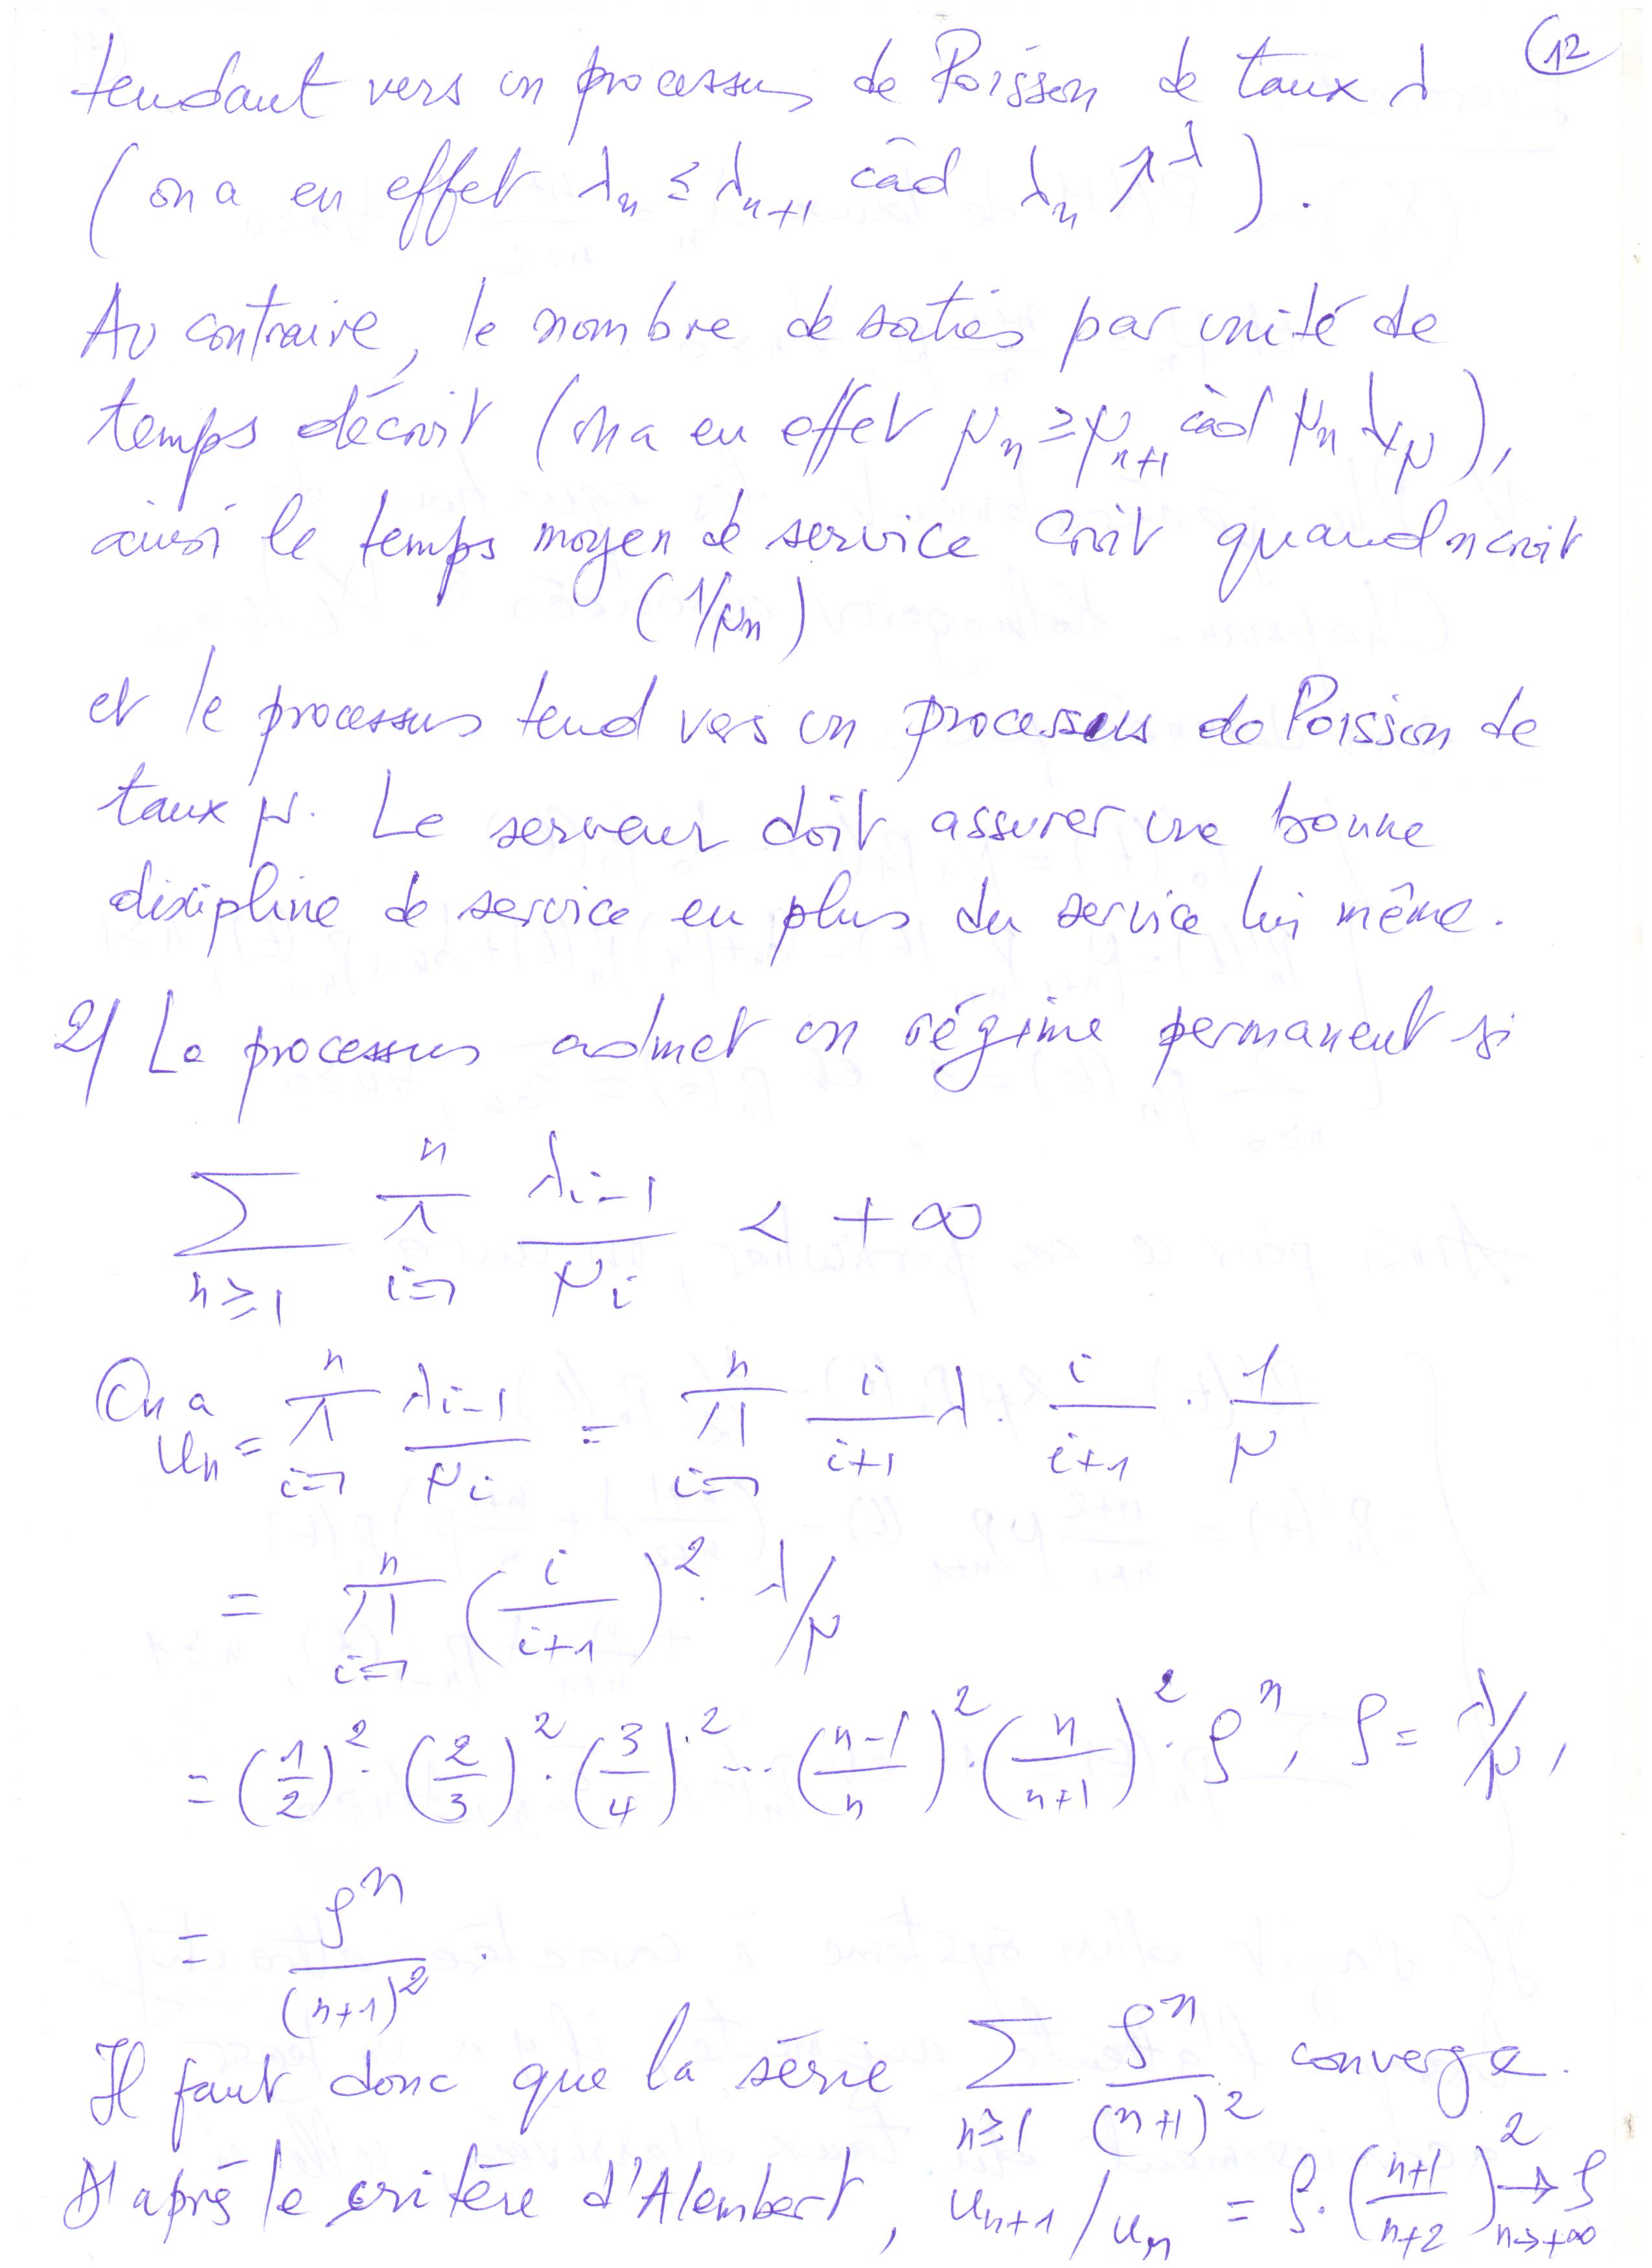 12
tendant vers un processus de Poisson de taux λ
(on a en effet λn ≤ λn+1 càd λn ↗ λ).
Au contraire, le nombre de sorties par unité de
temps décroit (on a en effet μn ≥ μn+1 càd μn ↘ μ),
ainsi le temps moyen de service croit quand n croit
(1/μn)
et le processus tend vers un processus de Poisson de
taux μ. Le serveur doit assurer une bonne
discipline de service en plus du service lui même.
2/ Le processus admet un régime permanent si
∑_{n≥1} ∏_{i=1}^{n} λ_{i-1}/μ_i < +∞
On a u_n = ∏_{i=1}^{n} λ_{i-1}/μ_i = ∏_{i=1}^{n} i/(i+1) λ . i/(i+1) . 1/μ
= ∏_{i=1}^{n} (i/(i+1))² . λ/μ
= (1/2)² . (2/3)² . (3/4)² ... ((n-1)/n)² . (n/(n+1))² . ρ^n, ρ = λ/μ,
= ρ^n/(n+1)² .
Il faut donc que la série ∑_{n≥1} ρ^n/(n+1)² converge.
D'après le critère d'Alembert, u_{n+1}/u_n = ρ . ((n+1)/(n+2))² →_{n→+∞} ρ